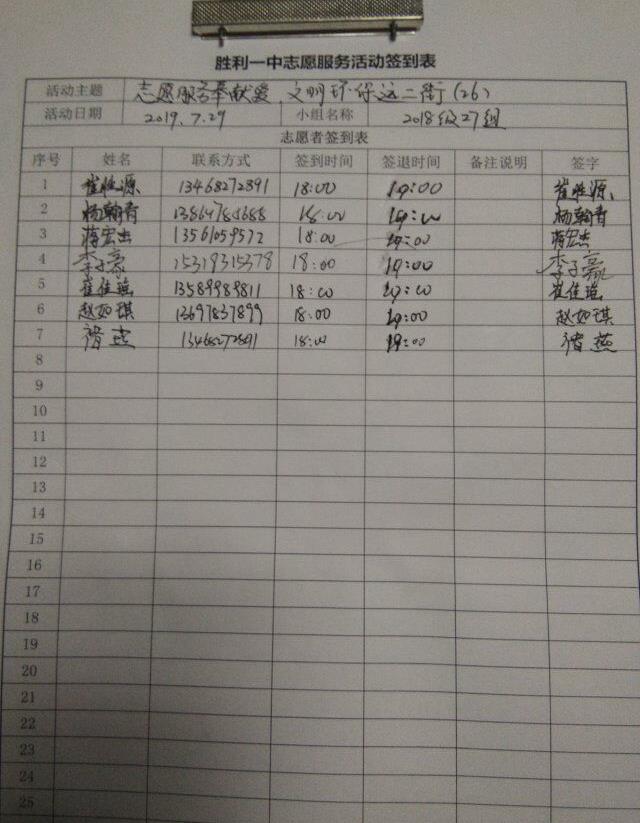 胜利一中志愿服务活动签到表
活动主题 志愿服务奉献爱，文明环保这二街(26)
活动日期 2019.7.29 小组名称 2018级27组
志愿者签到表
序号 姓名 联系方式 签到时间 签退时间 备注说明 签字
1 崔胜源 13468272891 18:00 19:00 崔胜源
2 杨翰青 18:00 19:00 杨翰青
3 蒋宏杰 13561059572 18:00 19:00 蒋宏杰
4 李子豪 15319315378 18:00 19:00 李子豪
5 崔佳瑶 13589989811 18:00 19:00 崔佳瑶
6 赵如琪 13697837899 18:00 19:00 赵如琪
7 褚燕 13468272891 18:00 19:00 褚燕
8
9
10
11
12
13
14
15
16
17
18
19
20
21
22
23
24
25